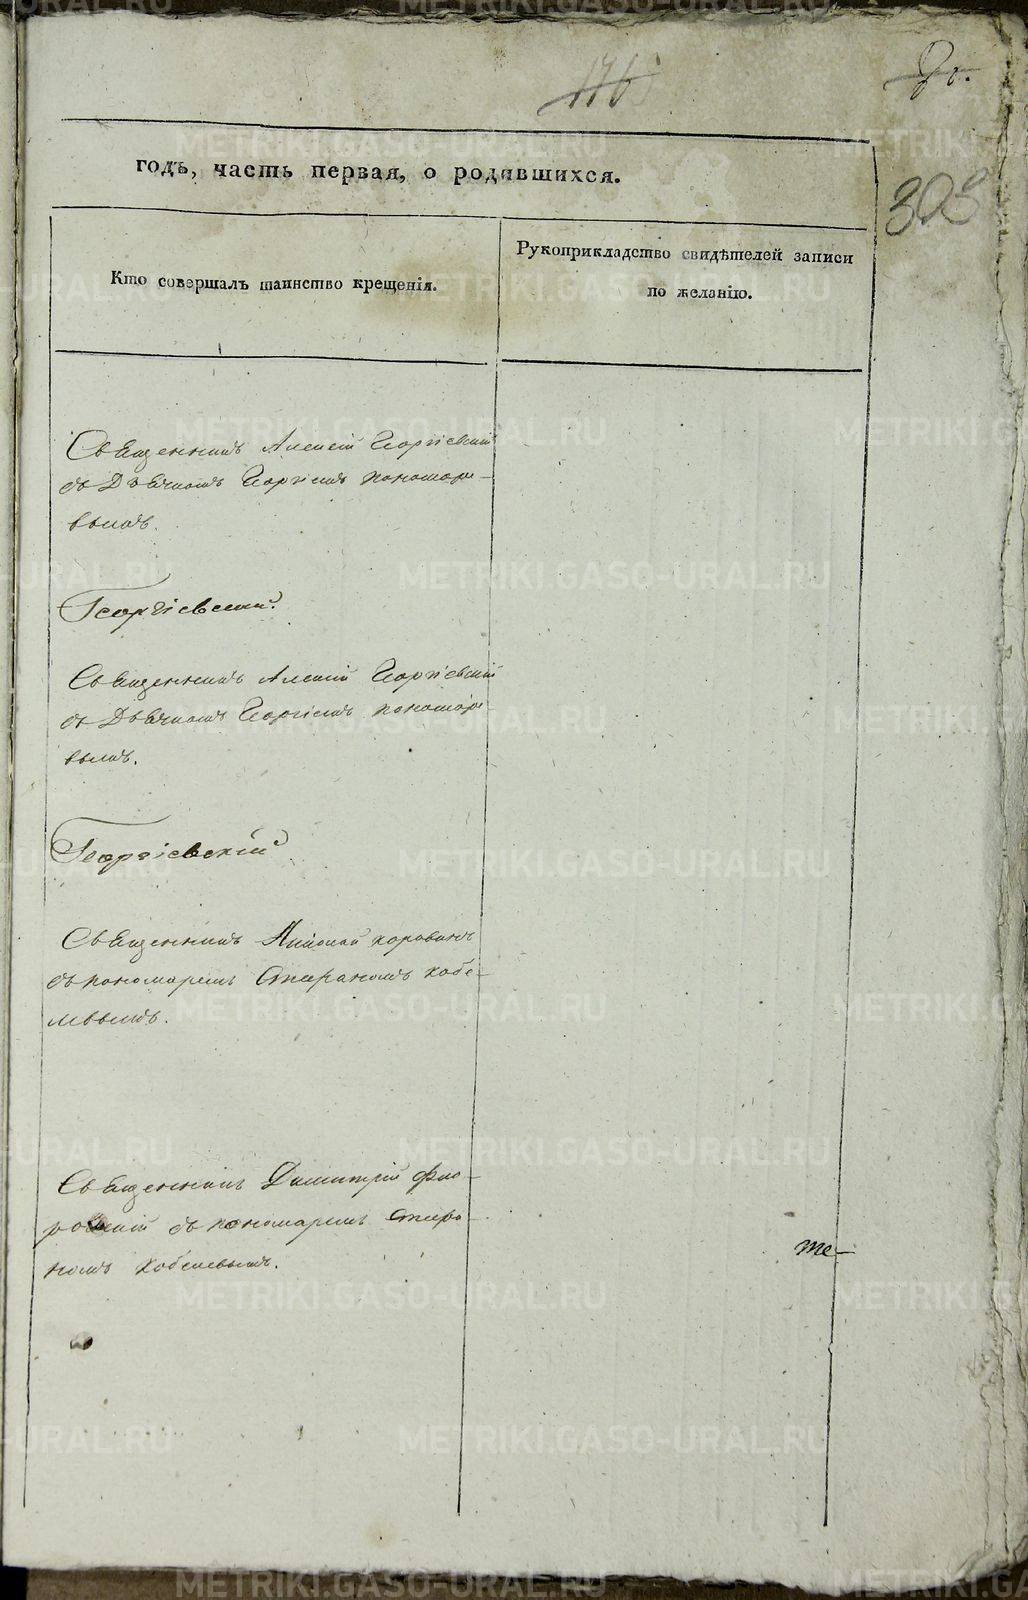 176
303
годъ, часть первая, о родившихся.
Кто совершалъ таинство крещенія.
Рукоприкладство свидѣтелей записи
по желанію.
Священникъ Алексій Георгіевскій
съ Дьячкомъ Георгіемъ пономаре-
вымъ.
Георгіевскій
Священникъ Алексій Георгіевскій
съ Дьячкомъ Георгіемъ пономаре-
вымъ.
Георгіевскій
Священникъ Николай коровинъ
съ пономаремъ Стефаномъ кобе-
левымъ.
Священникъ Димитрій Фло-
ровскій съ пономаремъ Стефа-
номъ кобелевымъ.
те-
METRIKI.GASO-URAL.RU